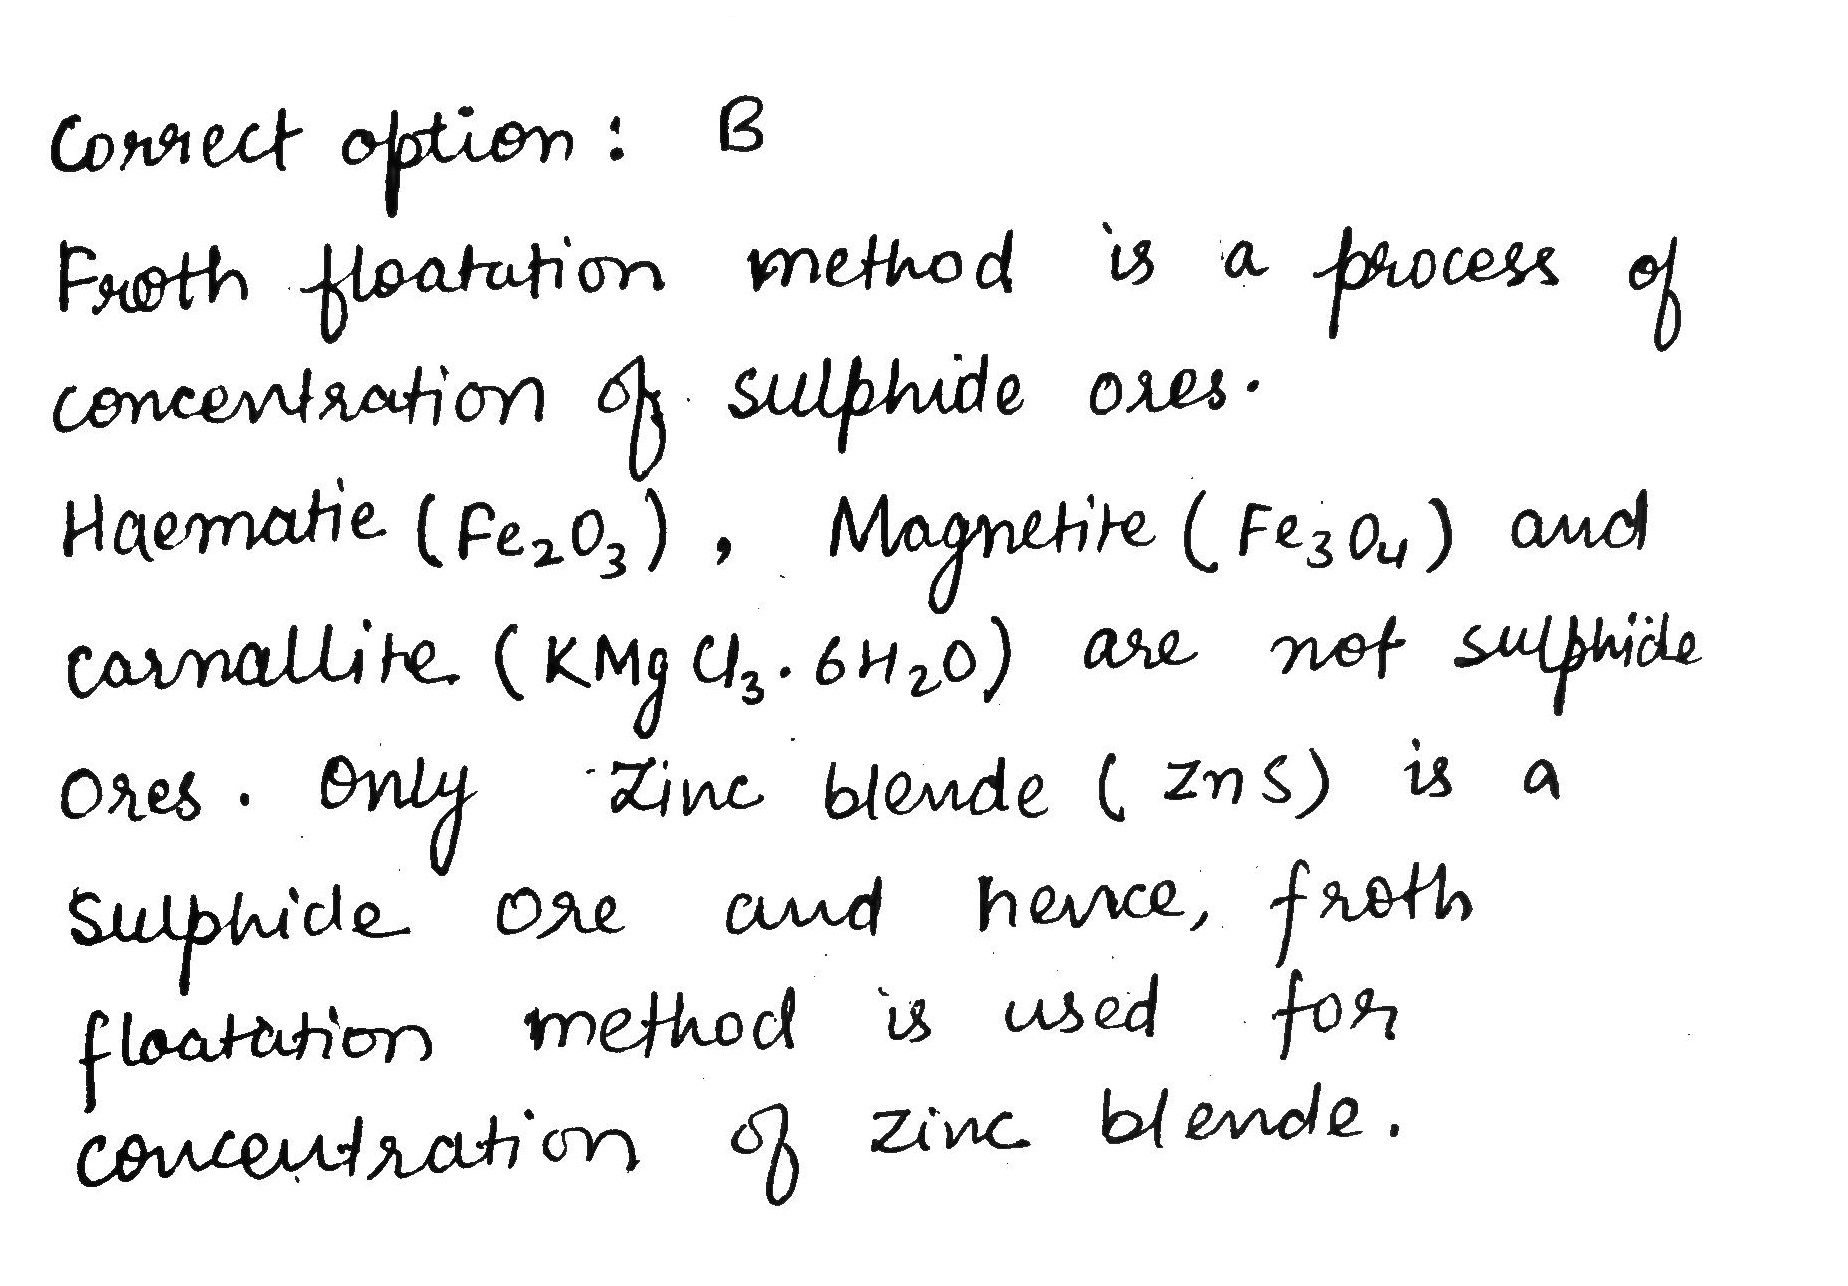 Correct option: B
Froth floatation method is a process of
concentration of sulphide ores.
Haematie (Fe₂O₃), Magnetite (Fe₃O₄) and
carnallite (KMgCl₃.6H₂O) are not sulphide
ores. Only Zinc blende (ZnS) is a
Sulphide ore and hence, froth
floatation method is used for
concentration of zinc blende.